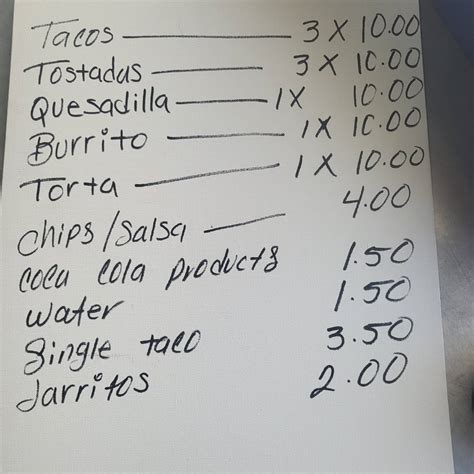 Tacos — 3 X 10.00
Tostadas — 3 X 10.00
Quesadilla — 1X 10.00
Burrito — 1X 10.00
Torta — 1 X 10.00
chips/salsa — 4.00
coca cola products 1.50
water 1.50
Single taco 3.50
Jarritos 2.00